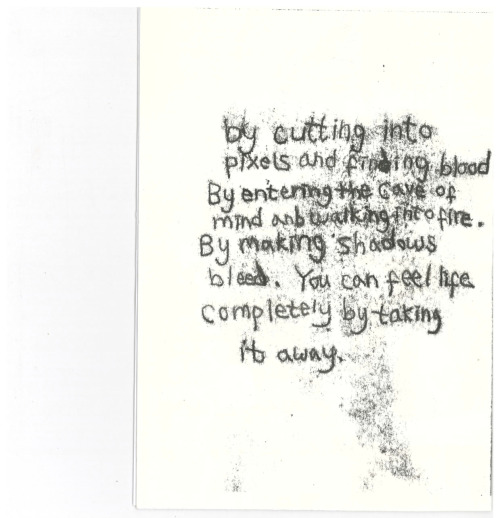 by cutting into
pixels and finding blood
By entering the cave of
mind anb walking into fire.
By making shadows
bleed. You can feel life
completely by taking
it away.